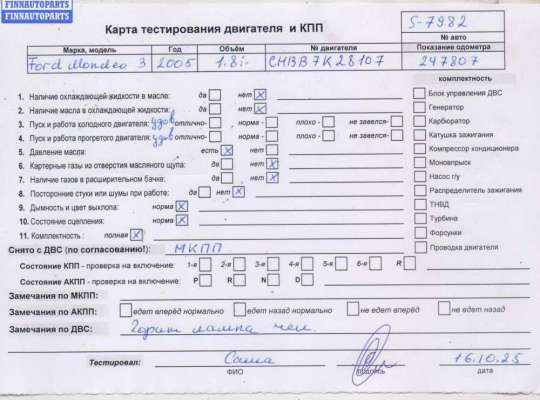 FINNAUTOPARTS
FINNAUTOPARTS
Карта тестирования двигателя и КПП
S-7982
№ авто
Марка, модель Год Объём № двигателя Показание одометра
Ford Mondeo 3 2005 1.8i- CHBB 7K28107 247807
комплектность
1. Наличие охлаждающей жидкости в масле: да нет
2. Наличие масла в охлаждающей жидкости: да нет
3. Пуск и работа холодного двигателя: удов отлично- норма - плохо - не завелся-
4. Пуск и работа прогретого двигателя: удов отлично- норма - плохо - не завелся-
5. Давление масла: есть нет
6. Картерные газы из отверстия масляного щупа: да нет
7. Наличие газов в расширительном бачке: да нет
8. Посторонние стуки или шумы при работе: да нет
9. Дымность и цвет выхлопа: норма
10. Состояние сцепления: норма
11. Комплектность : полная
Блок управления ДВС
Генератор
Карбюратор
Катушка зажигания
Компрессор кондиционера
Моновпрыск
Насос г/у
Распределитель зажигания
ТНВД
Турбина
Форсунки
Проводка двигателя
Снято с ДВС (по согласованию!): МКПП
Состояние КПП - проверка на включение: 1-я 2-я 3-я 4-я 5-я 6-я R
Состояние АКПП - проверка на включение: P R N D
Замечания по МКПП:
Замечания по АКПП: едет вперёд нормально едет назад нормально не едет вперёд не едет назад
Замечания по ДВС: Горит лампа чек.
Тестировал: Саша 16.10.25
ФИО подпись дата